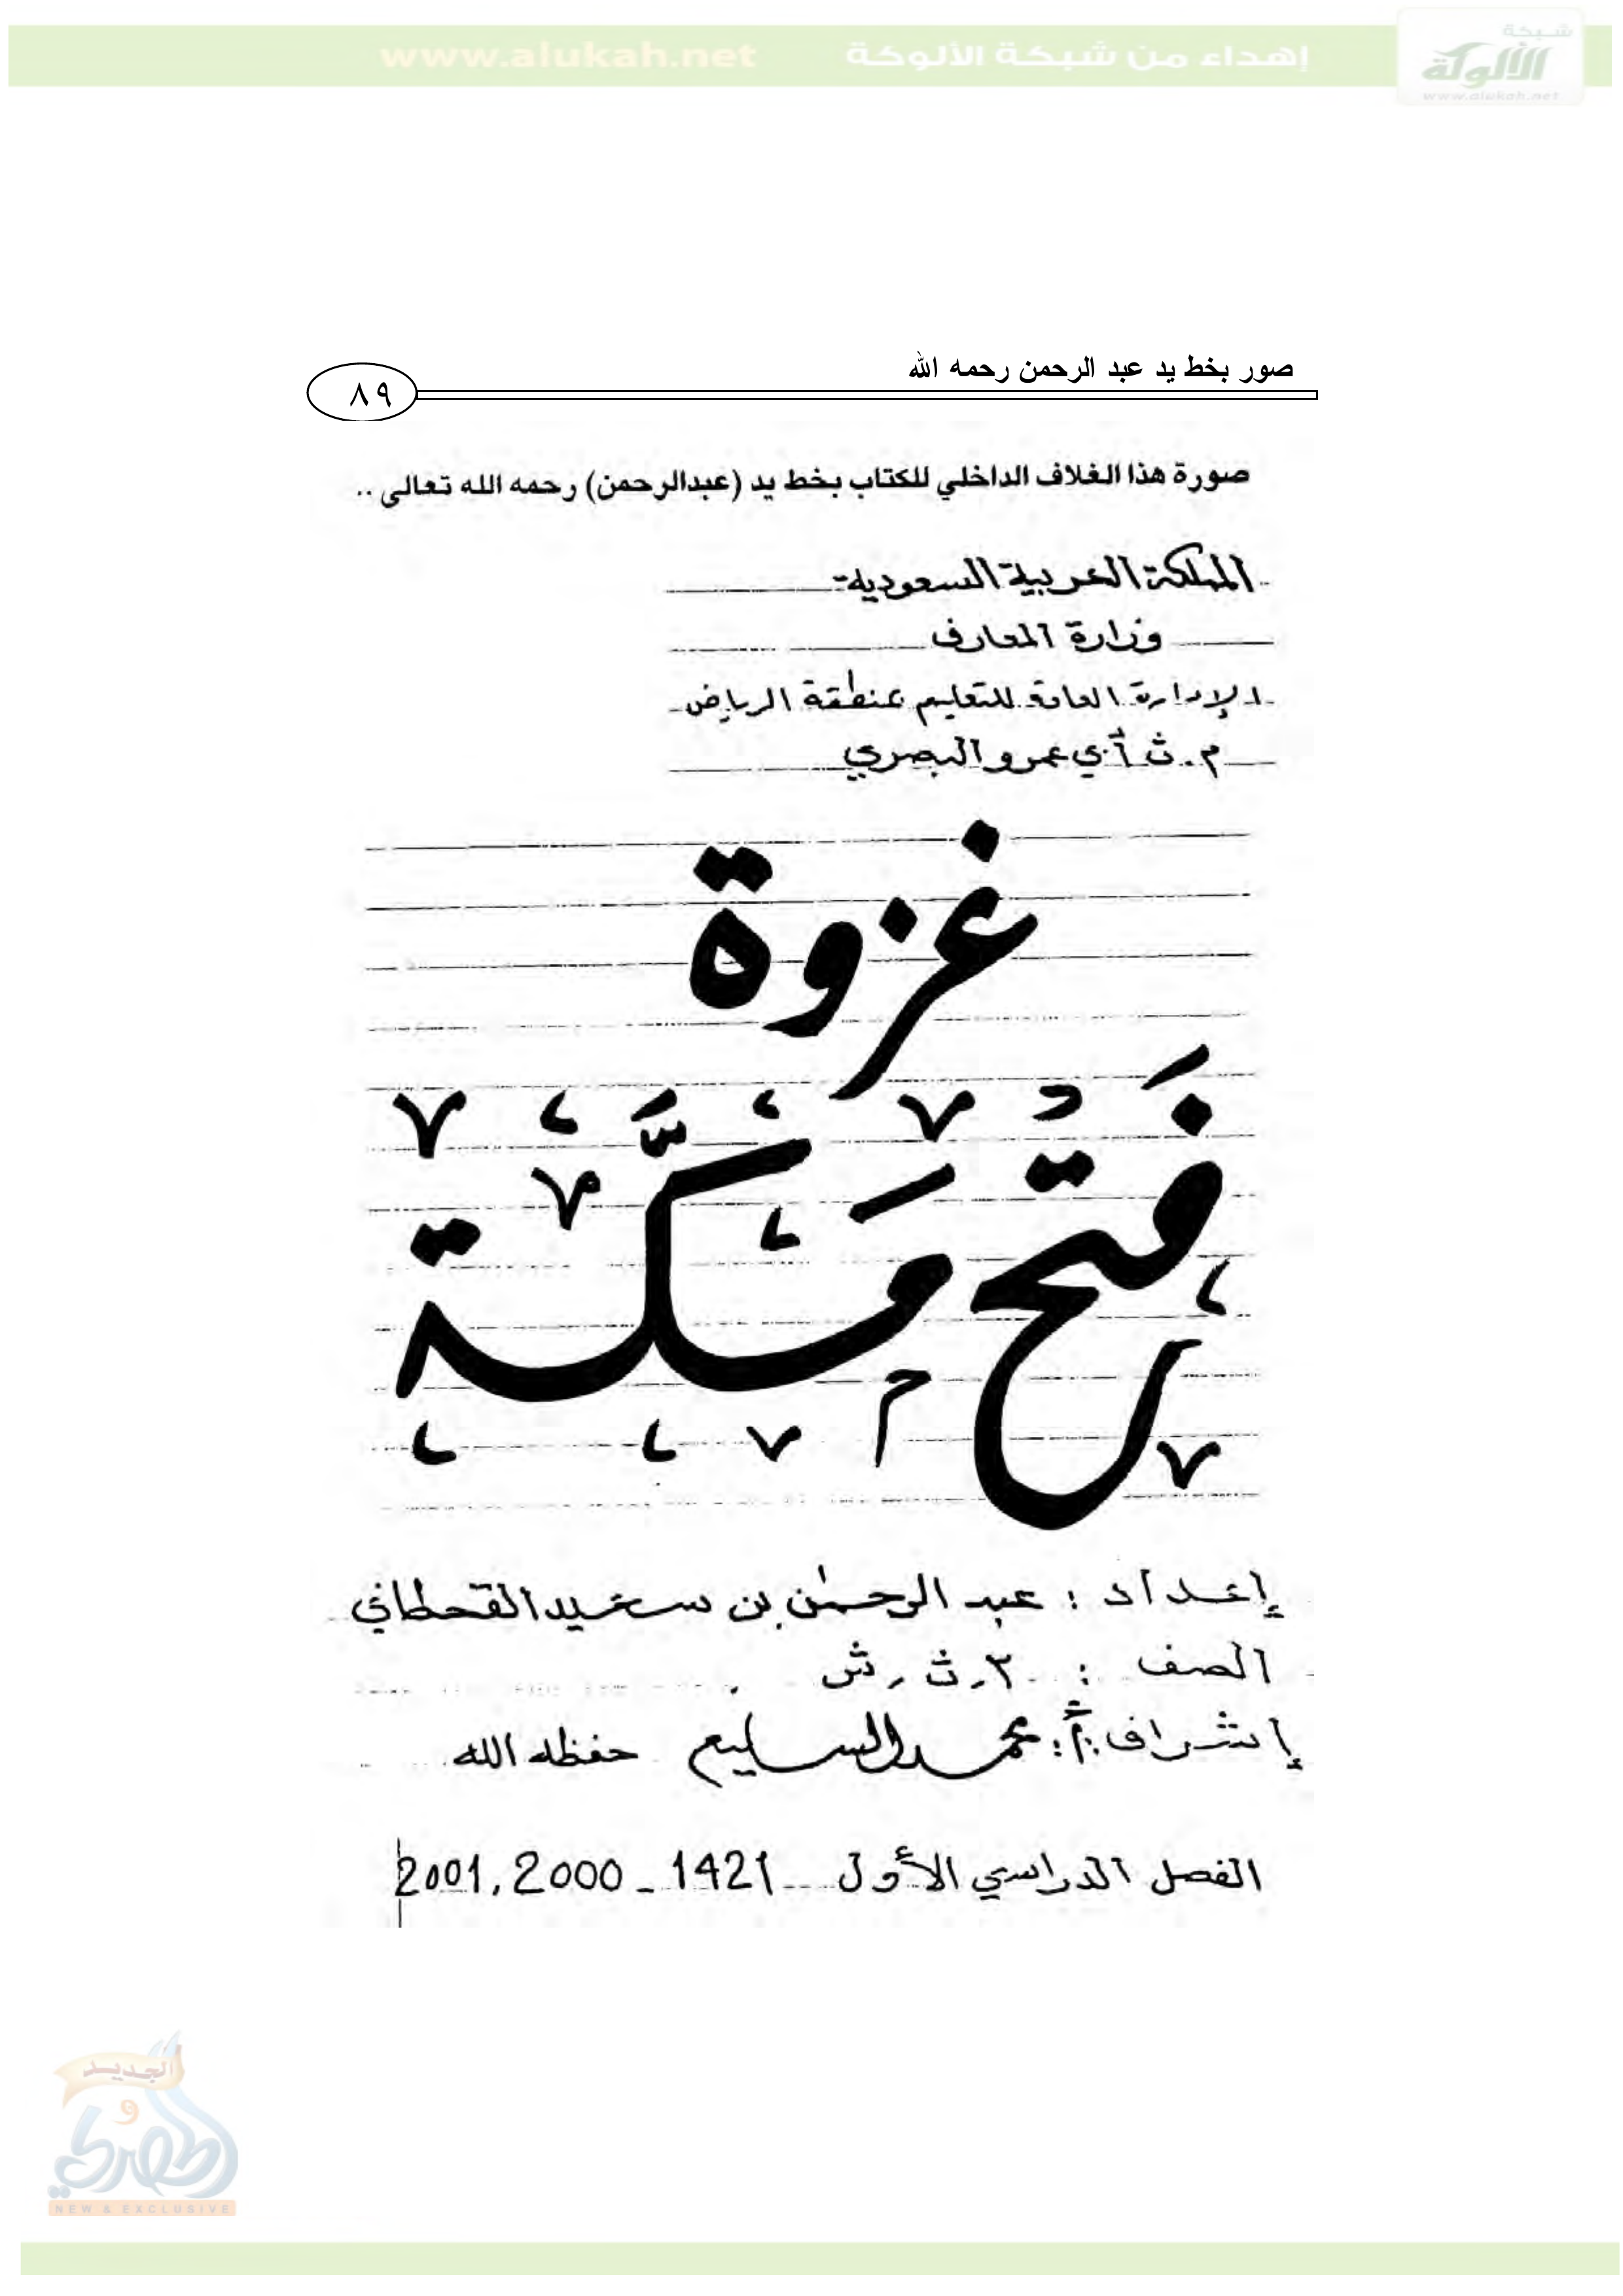 إهداء من شبكة الألوكة www.alukah.net
شبكة
الألوكة
www.alukah.net
صور بخط يد عبد الرحمن رحمه الله
٨٩
صورة هذا الغلاف الداخلي للكتاب بخط يد (عبدالرحمن) رحمه الله تعالى ..
المملكة العربية السعودية
وزارة المعارف
الإدارة العامة للتعليم بمنطقة الرياض
م. ث أبي عمرو البصري
غزوة
فَتْح مَكَّة
إعداد : عبد الرحمٰن بن سعيد القحطاني
الصف : ٣. ث. ش
إشراف أ: محمد السليم حفظه الله
الفصل الدراسي الأول 1421 - 2000, 2001
الجديد
و
الحصري
NEW & EXCLUSIVE